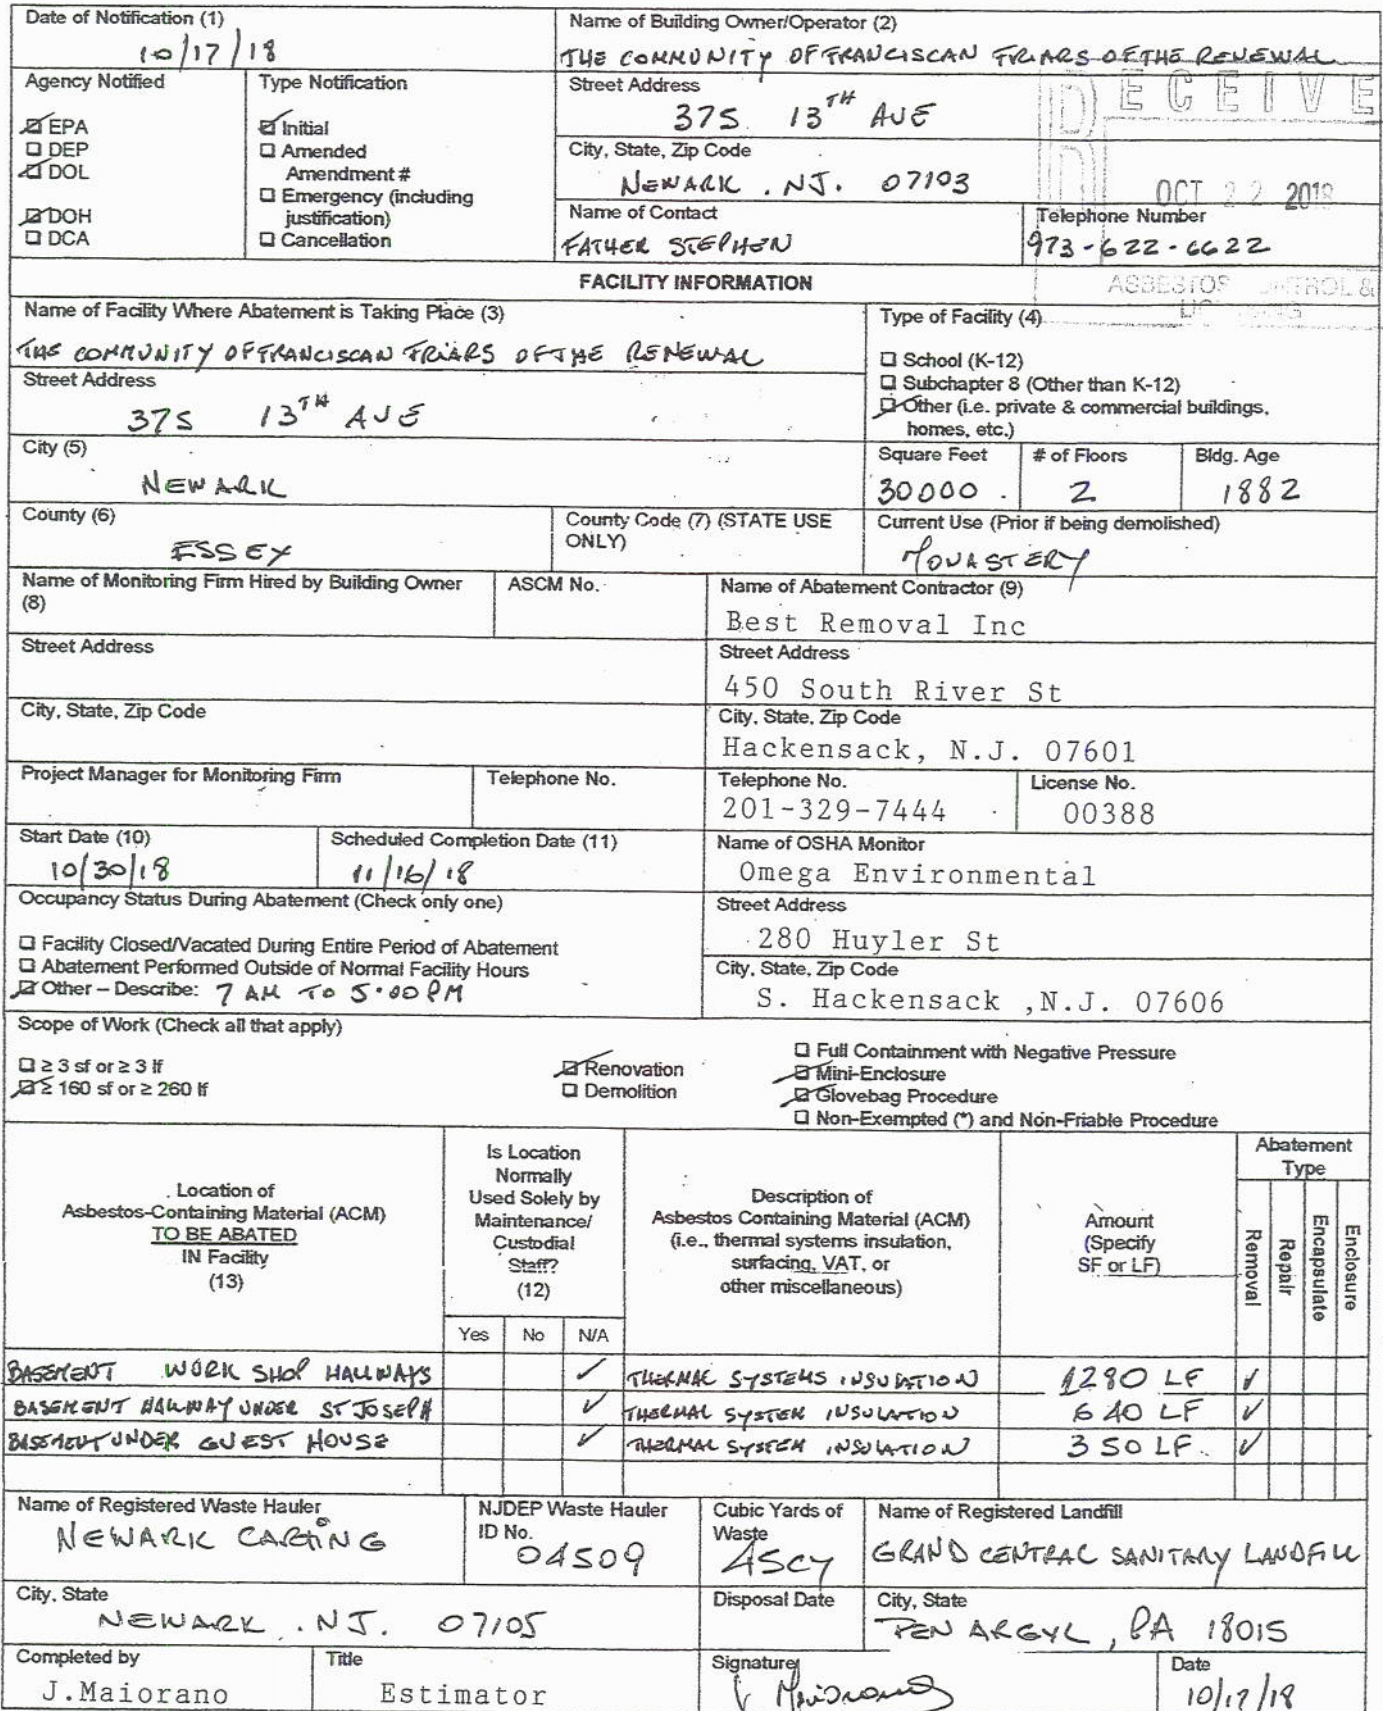 Date of Notification (1)
10/17/18
Name of Building Owner/Operator (2)
THE COMMUNITY OF FRANCISCAN FRIARS OF THE RENEWAL
Agency Notified
EPA
DEP
DOL
DOH
DCA
Type Notification
Initial
Amended
Amendment #
Emergency (including
justification)
Cancellation
Street Address
375 13TH AVE
City, State, Zip Code
NEWARK . NJ. 07103
Name of Contact
FATHER STEPHEN
Telephone Number
973-622-6622
ECEIVE
OCT 22 2018
ASBESTOS CONTROL &
FACILITY INFORMATION
Name of Facility Where Abatement is Taking Place (3)
THE COMMUNITY OF FRANCISCAN FRIARS OF THE RENEWAL
Street Address
375 13TH AVE
Type of Facility (4)
School (K-12)
Subchapter 8 (Other than K-12)
Other (i.e. private & commercial buildings,
homes, etc.)
City (5)
NEWARK
Square Feet
30000
# of Floors
2
Bldg. Age
1882
County (6)
ESSEX
County Code (7) (STATE USE
ONLY)
Current Use (Prior if being demolished)
MONASTERY
Name of Monitoring Firm Hired by Building Owner
(8)
ASCM No.
Name of Abatement Contractor (9)
Best Removal Inc
Street Address
Street Address
450 South River St
City, State, Zip Code
City, State, Zip Code
Hackensack, N.J. 07601
Project Manager for Monitoring Firm
Telephone No.
Telephone No.
201-329-7444
License No.
00388
Start Date (10)
10/30/18
Scheduled Completion Date (11)
11/16/18
Name of OSHA Monitor
Omega Environmental
Occupancy Status During Abatement (Check only one)
Facility Closed/Vacated During Entire Period of Abatement
Abatement Performed Outside of Normal Facility Hours
Other – Describe: 7 AM TO 5:00 PM
Street Address
280 Huyler St
City, State, Zip Code
S. Hackensack ,N.J. 07606
Scope of Work (Check all that apply)
≥ 3 sf or ≥ 3 lf
≥ 160 sf or ≥ 260 lf
Renovation
Demolition
Full Containment with Negative Pressure
Mini-Enclosure
Glovebag Procedure
Non-Exempted (*) and Non-Friable Procedure
Location of
Asbestos-Containing Material (ACM)
TO BE ABATED
IN Facility
(13)
Is Location
Normally
Used Solely by
Maintenance/
Custodial
Staff?
(12)
Yes No N/A
Description of
Asbestos Containing Material (ACM)
(i.e., thermal systems insulation,
surfacing, VAT, or
other miscellaneous)
Amount
(Specify
SF or LF)
Abatement
Type
Removal
Repair
Encapsulate
Enclosure
BASEMENT WORK SHOP HALLWAYS ✓ THERMAL SYSTEMS INSULATION 1280 LF ✓
BASEMENT HALLWAY UNDER ST JOSEPH ✓ THERMAL SYSTEM INSULATION 640 LF ✓
BASEMENT UNDER GUEST HOUSE ✓ THERMAL SYSTEM INSULATION 350 LF. ✓
Name of Registered Waste Hauler
NEWARK CARTING
NJDEP Waste Hauler
ID No.
04509
Cubic Yards of
Waste
45CY
Name of Registered Landfill
GRAND CENTRAL SANITARY LANDFILL
City, State
NEWARK . NJ. 07105
Disposal Date
City, State
PEN ARGYL, PA 18015
Completed by
J.Maiorano
Title
Estimator
Signature
Date
10/17/18